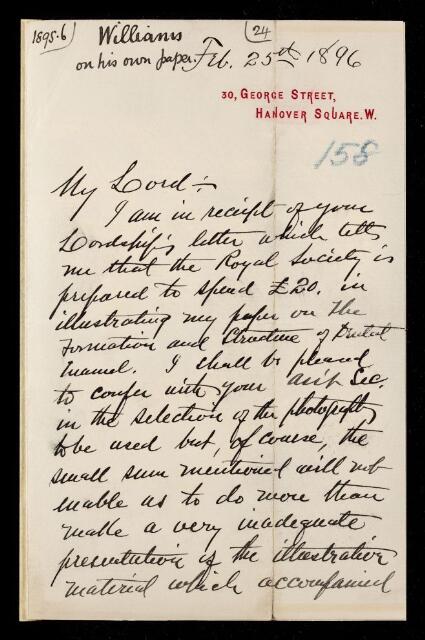 1895-6
Williams
on his own paper.
24
Feb. 25th 1896
30, GEORGE STREET,
HANOVER SQUARE. W.
158
My Lord :-
I am in receipt of your
Lordship's letter which tells
me that the Royal Society is
prepared to spend £20. in
illustrating my paper on The
Formation and Structure of Dental
Enamel. I shall be pleased
to confer with your asst Sec.
in the selection of the photographs
to be used but, of course, the
small sum mentioned will not
enable us to do more than
make a very inadequate
presentation of the illustrative
material which accompanied